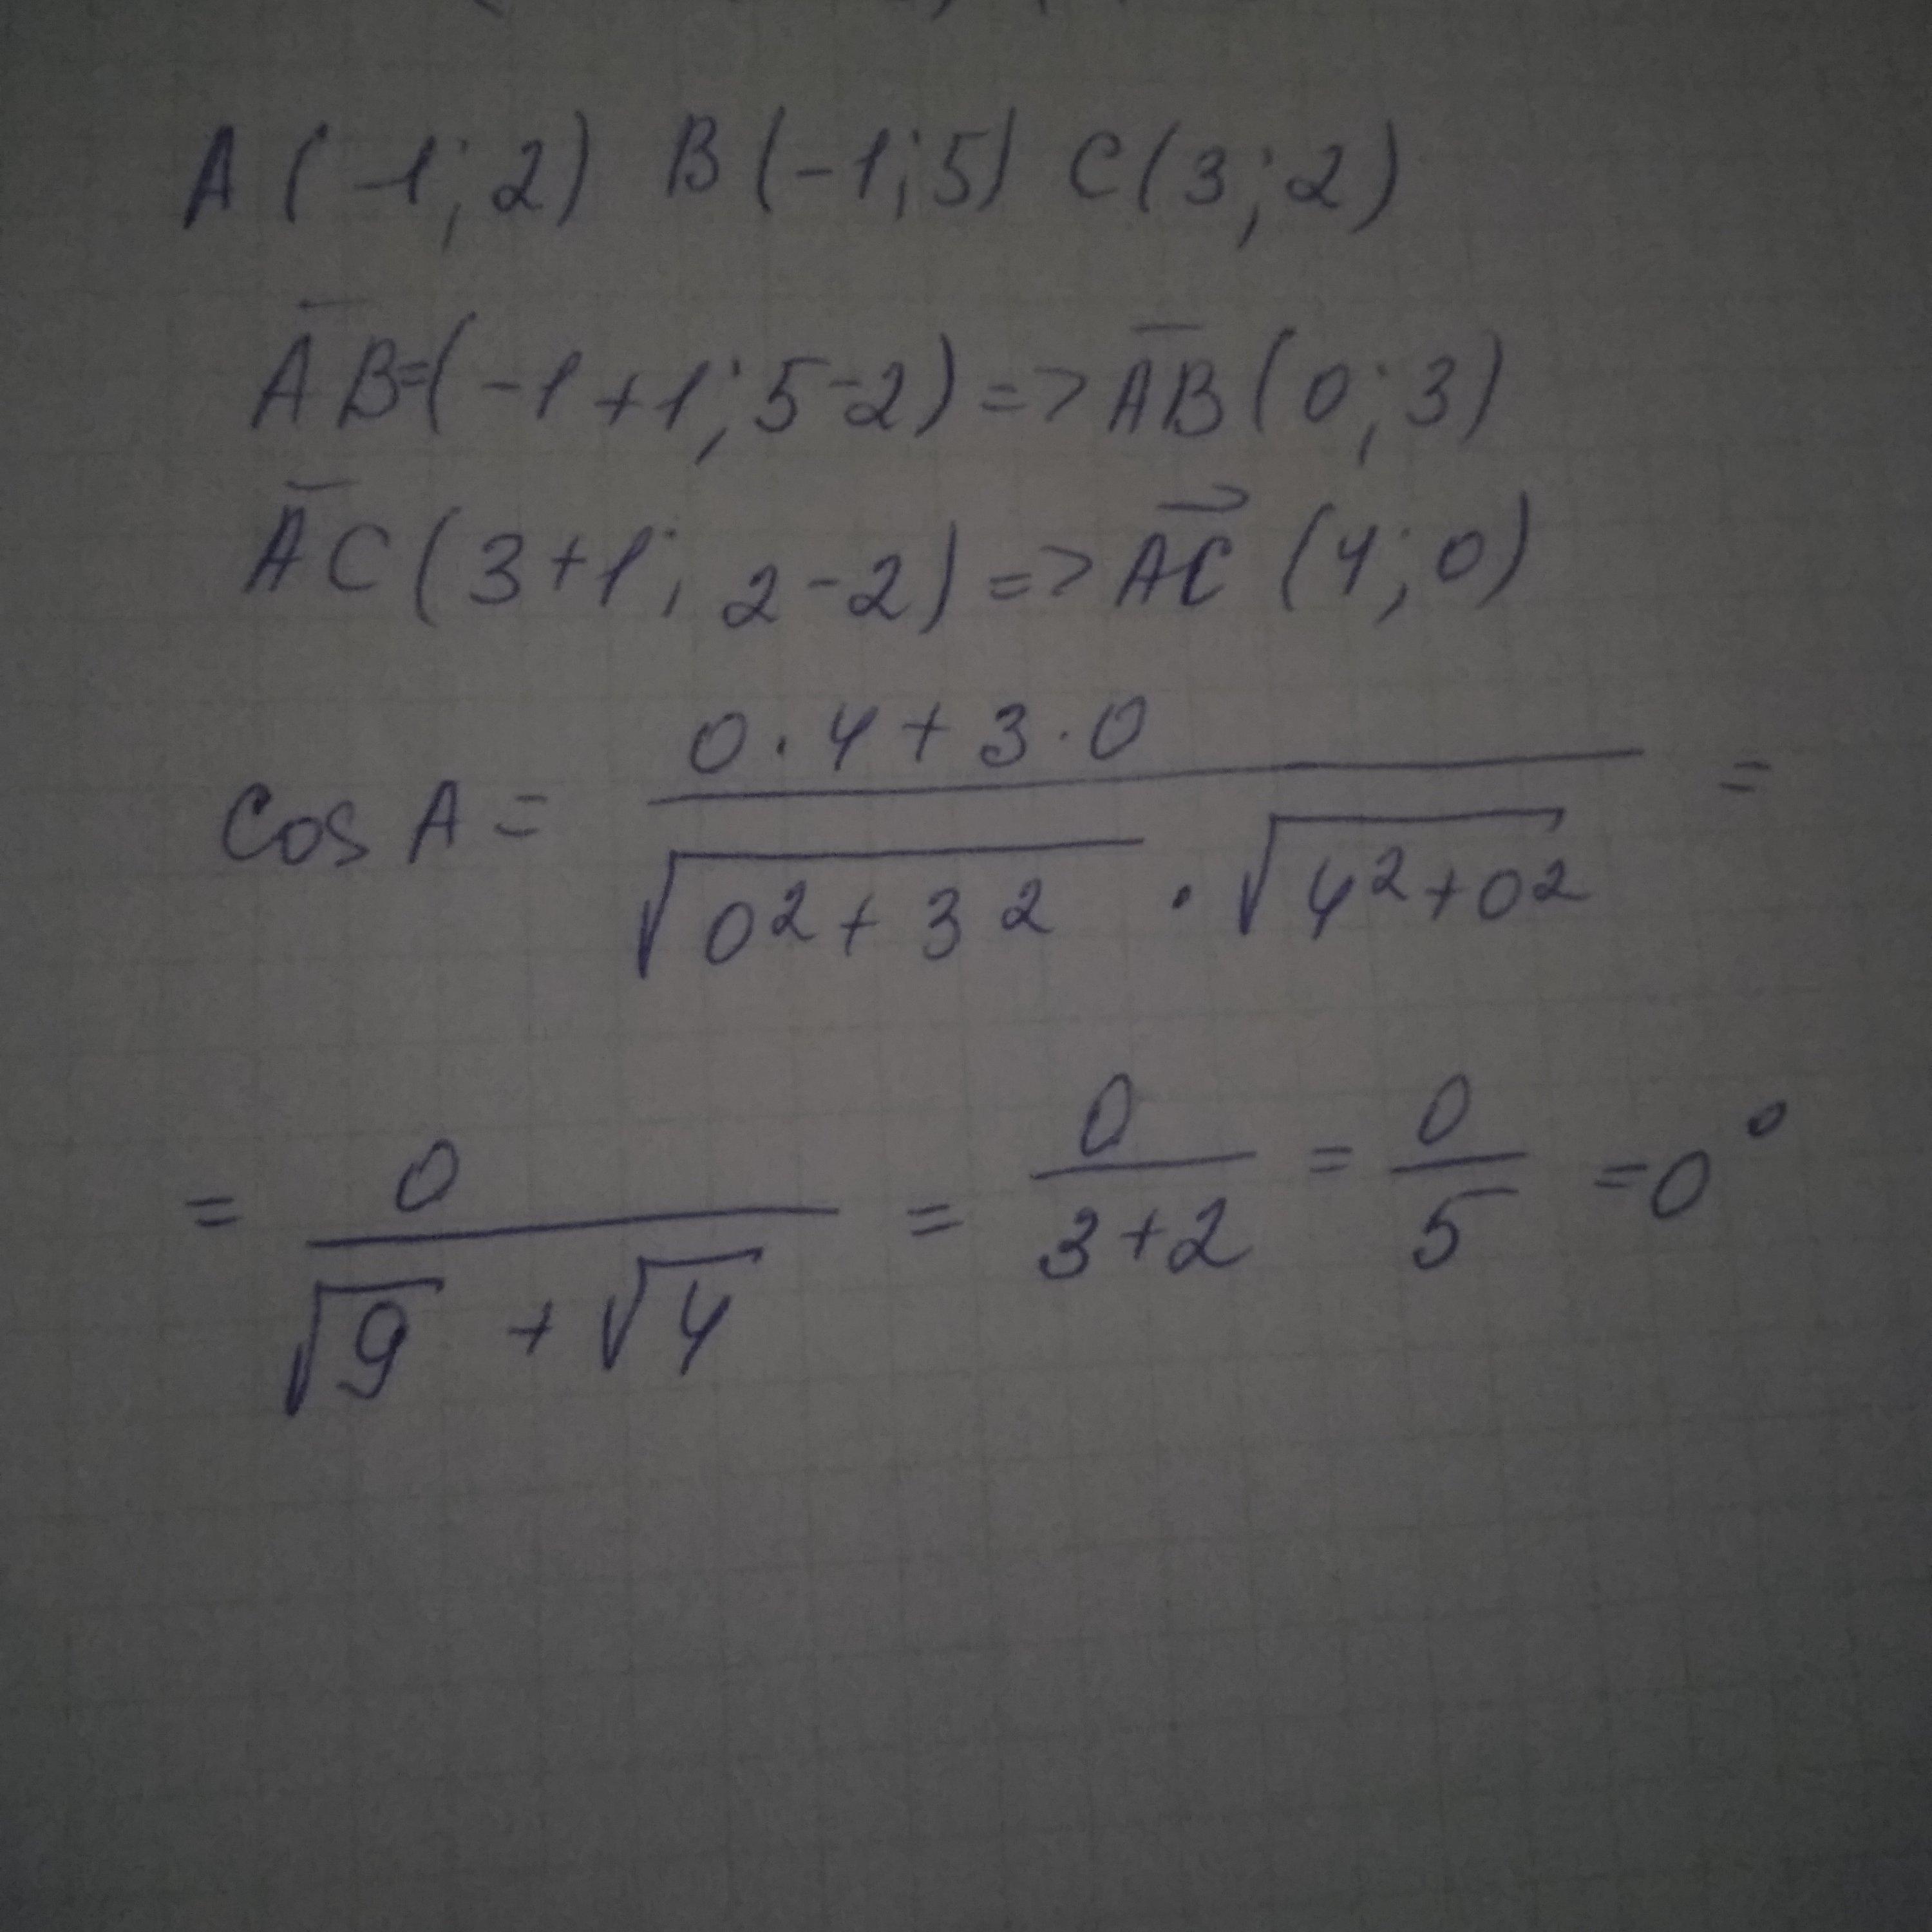 A(-1; 2) B(-1; 5) C(3; 2)
A̅B=(-1+1; 5-2) => A̅B(0; 3)
A̅C(3+1; 2-2) => A⃗C(4; 0)
cos A = (0·4+3·0)/(√(0²+3²) · √(4²+0²)) =
= 0/(√9 + √4) = 0/(3+2) = 0/5 = 0°